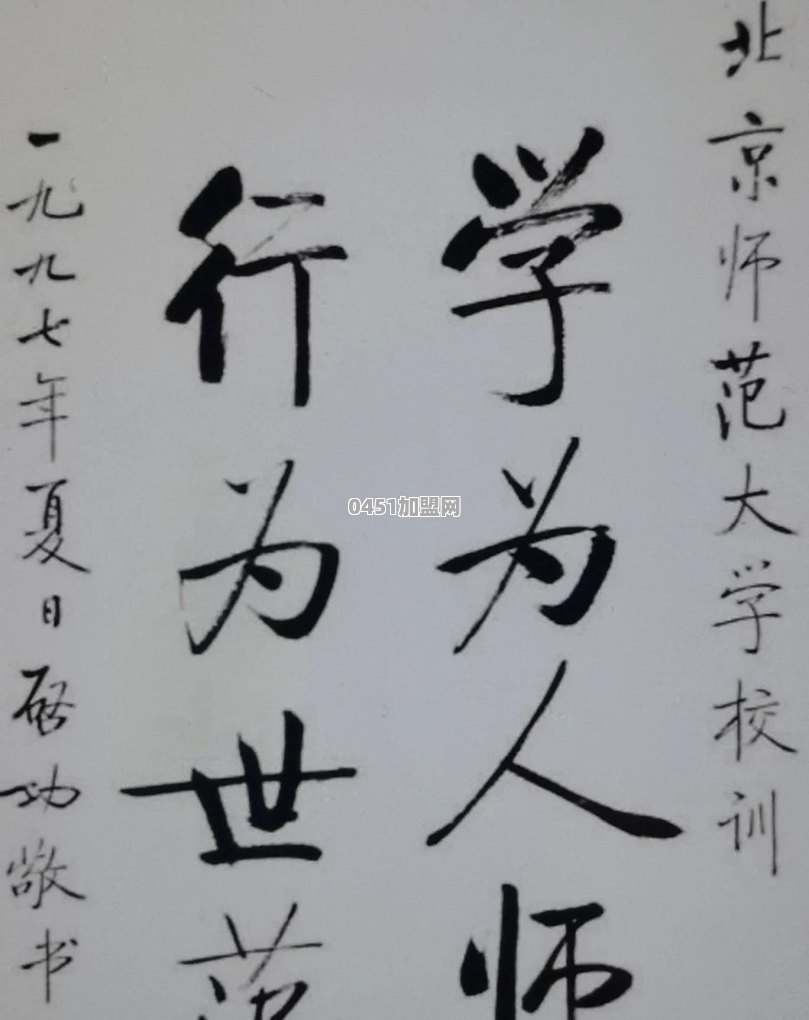 北京师范大学校训
学为人师
行为世范
一九九七年夏日启功敬书
0451加盟网